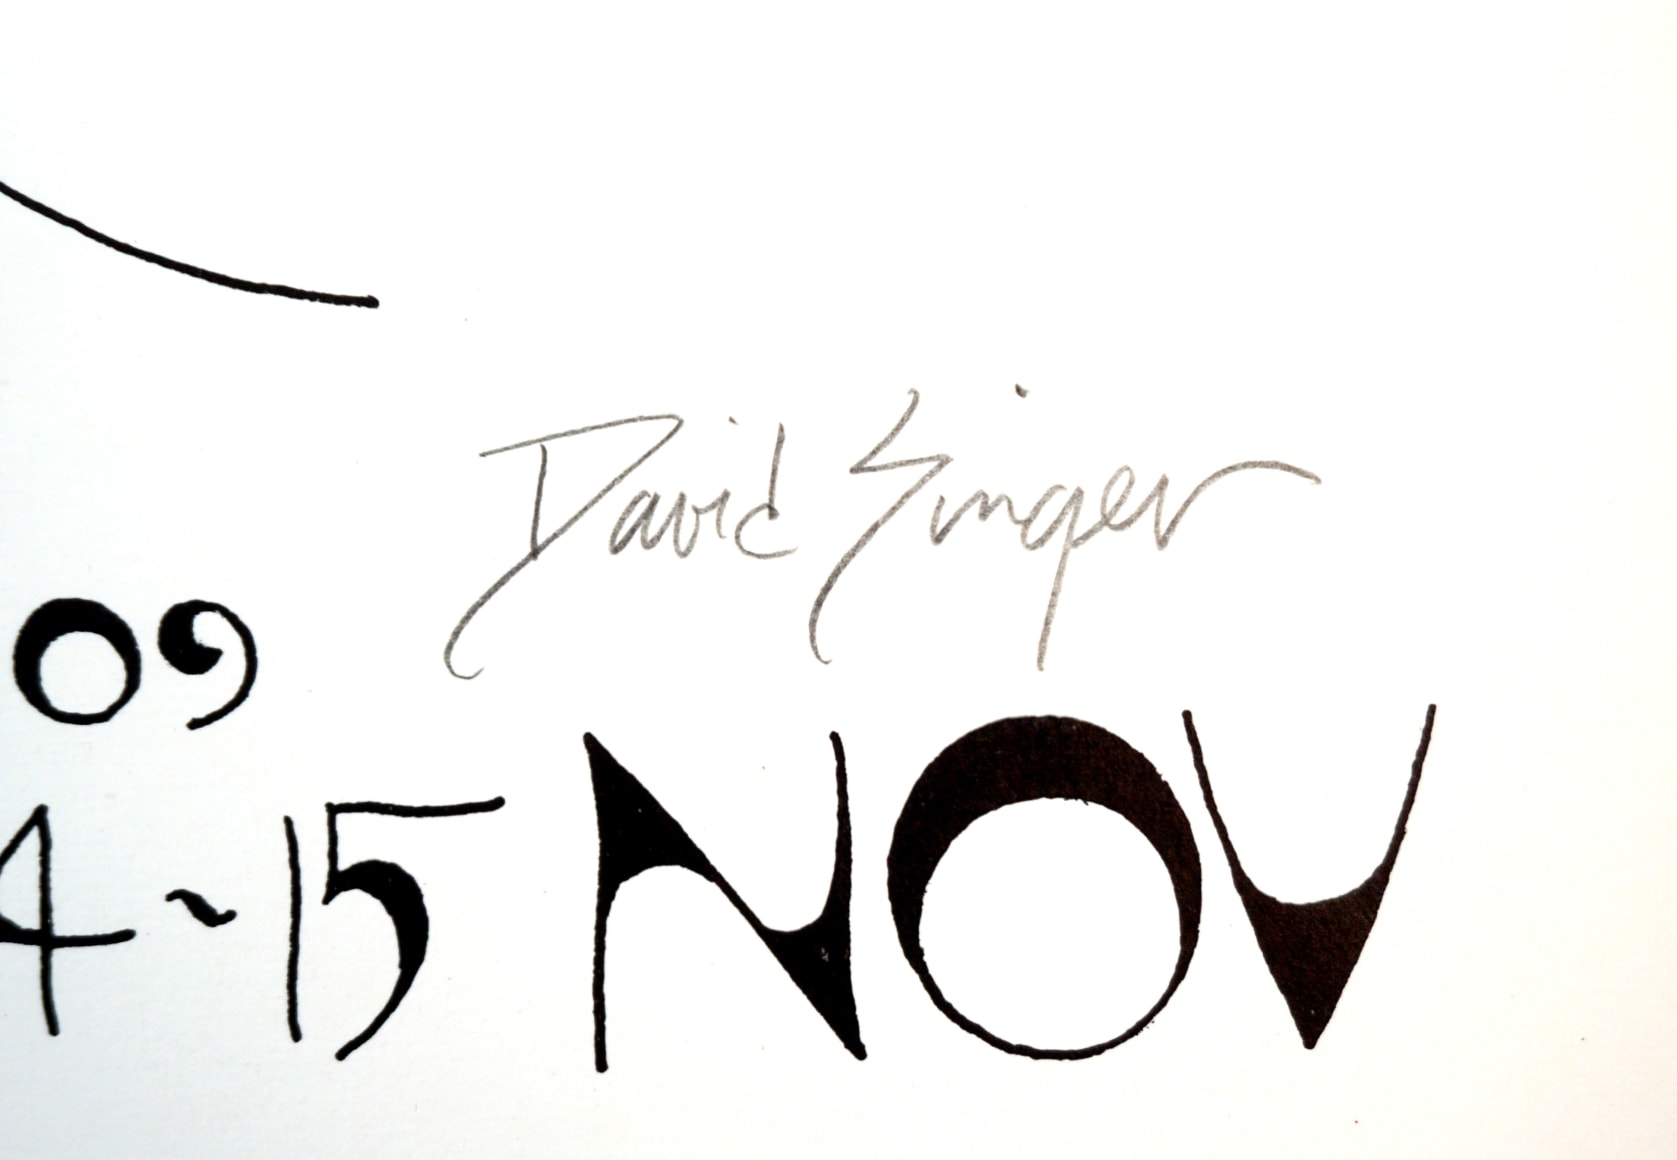 David Singer
09
4~15 NOV